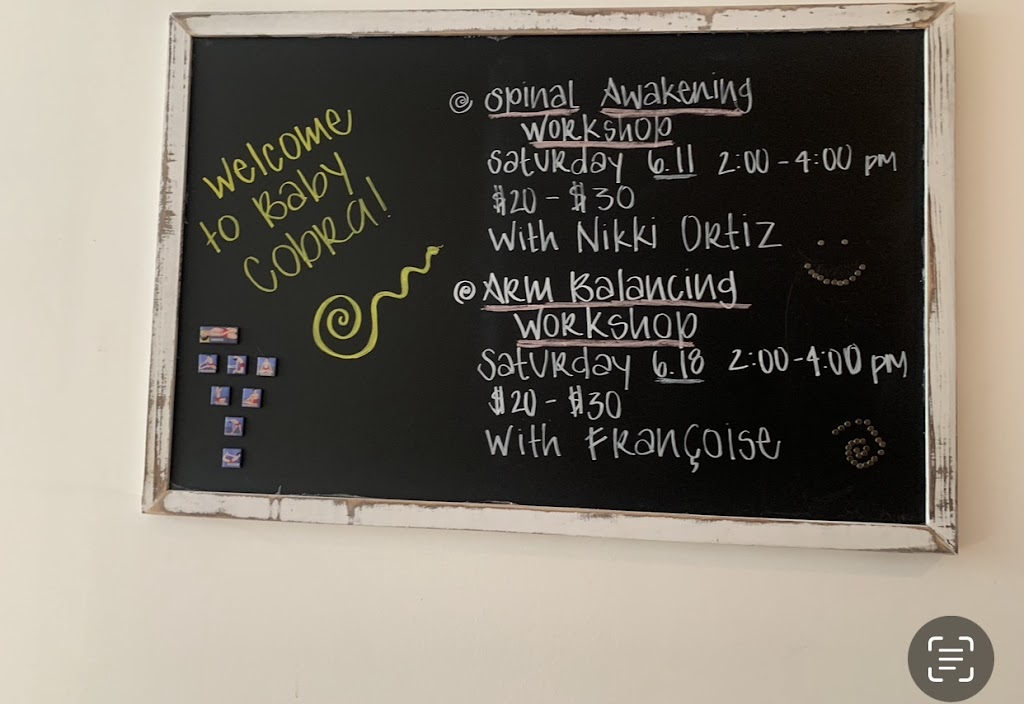 Welcome
to Baby
Cobra!
Spinal Awakening
Workshop
Saturday 6.11 2:00 - 4:00 pm
$20 - $30
With Nikki Ortiz
Arm Balancing
Workshop
Saturday 6.18 2:00 - 4:00 pm
$20 - $30
With Françoise